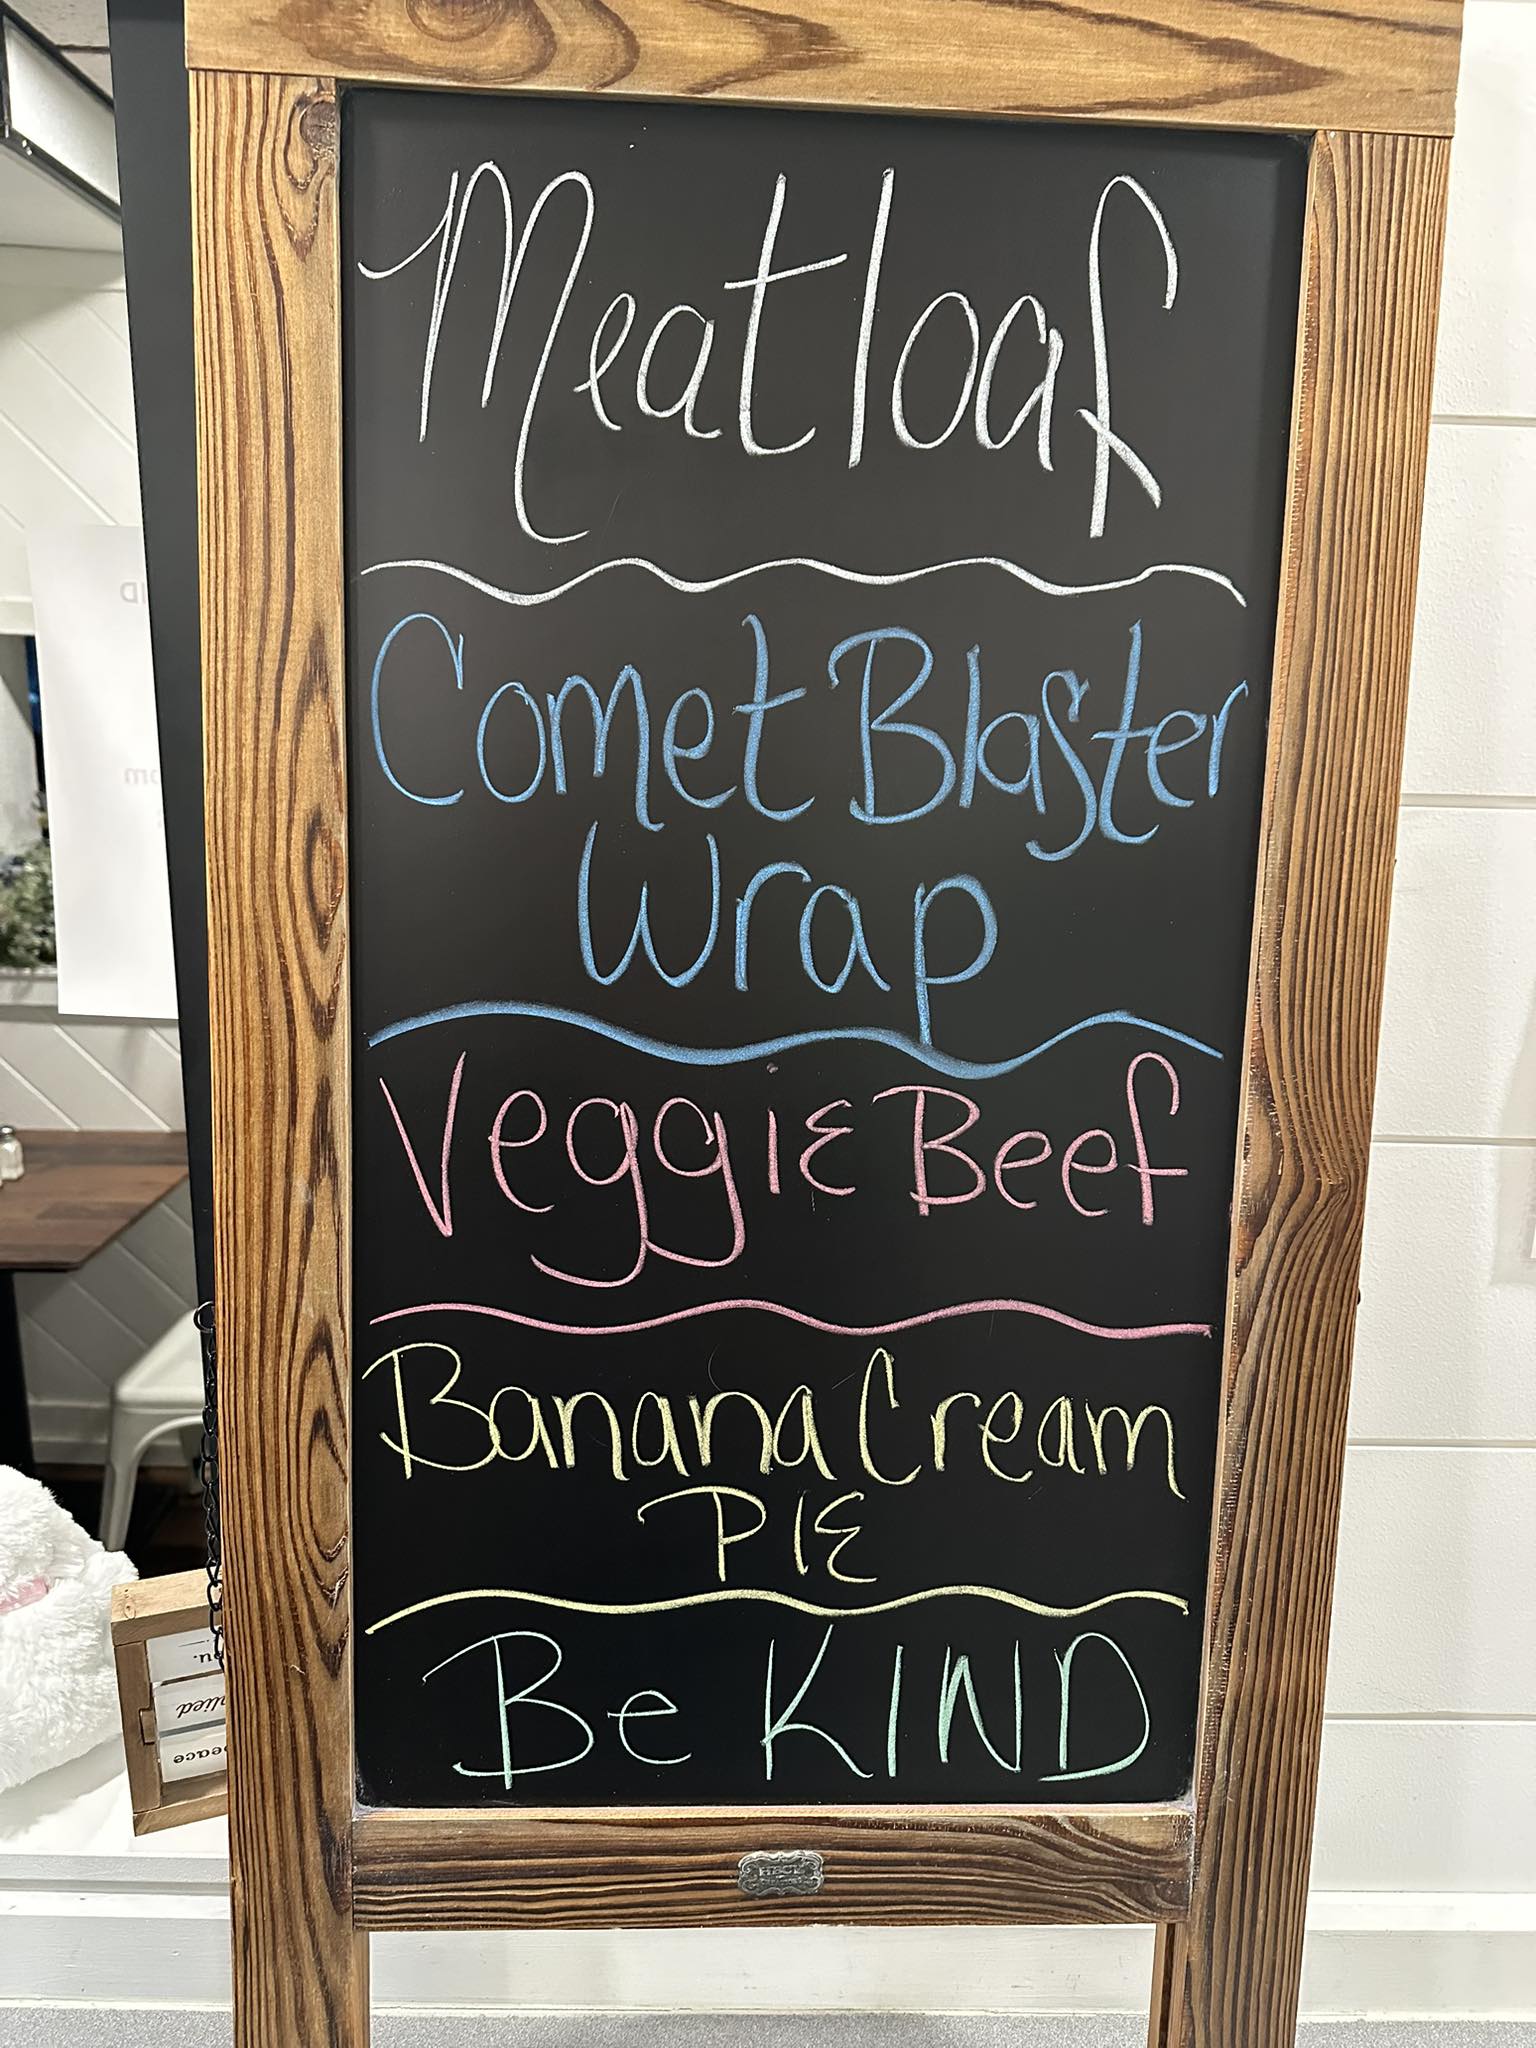 Meatloaf
Comet Blaster
Wrap
Veggie Beef
Banana Cream
PIE
Be KIND